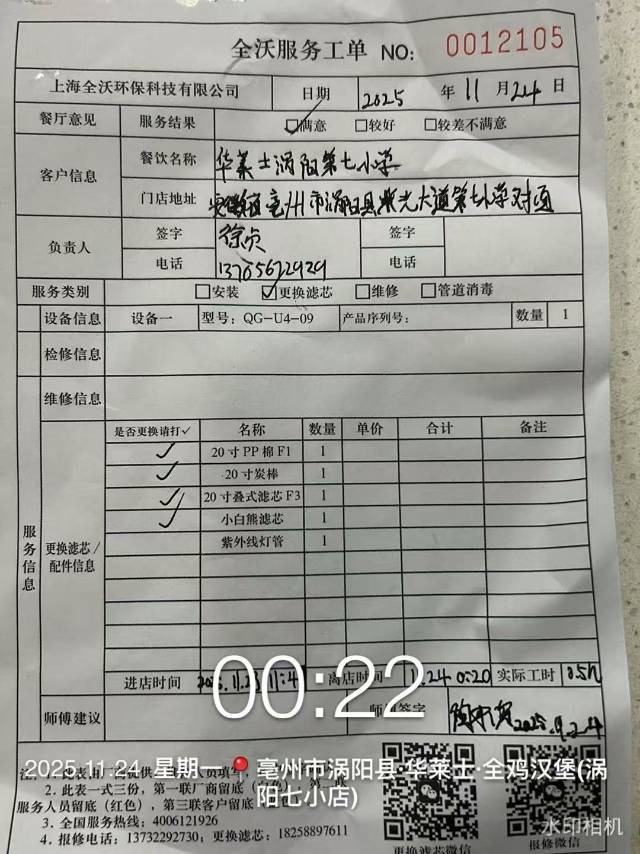 全沃服务工单 NO: 0012105
上海全沃环保科技有限公司 日期 2025 年 11 月 24 日
餐厅意见 服务结果 ☑满意 □较好 □较差不满意
客户信息 餐饮名称 华莱士涡阳第七小学
门店地址 安徽省亳州市涡阳县紫光大道第七小学对面
负责人 签字 徐贞 签字
电话 电话
服务类别 □安装 ☑更换滤芯 □维修 □管道消毒
设备信息 设备一 型号: QG-U4-09 产品序列号: 数量 1
检修信息
维修信息
服务信息
更换滤芯/配件信息
是否更换请打✓ 名称 数量 单价 合计 备注
✓ 20寸PP棉F1 1
✓ 20寸炭棒 1
✓ 20寸叠式滤芯F3 1
✓ 小白熊滤芯 1
紫外线灯管 1
进店时间 离店时间 11.24 0:20 实际工时 0.5h
00:22
师傅建议 签字
2025.11.24 星期一 亳州市涡阳县·华莱士·全鸡汉堡(涡阳七小店)
2. 此表一式三份，第一联厂商留底
服务人员留底（红色），第三联客户留底
3. 全国服务热线: 4006121926
4. 报修电话: 13732292730; 更换滤芯: 18258897611
更换滤芯微信 报修微信
水印相机